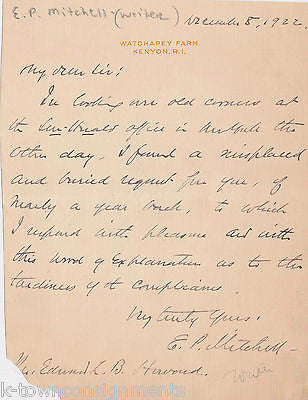 E. P. Mitchell-(writer)
December 5, 1922.
WATCHAPEY FARM
KENYON, R.I.
My dear Sir:
In looking over old corners at
the Sun-Herald office in New York the
other day, I found a misplaced
and buried request from you, of
nearly a year back, to which
I respond with pleasure and with
this word of explanation as to the
tardiness of compliance.
Very truly Yours,
E. P. Mitchell-
Mr. Edmund L. B.
k-townconsignments